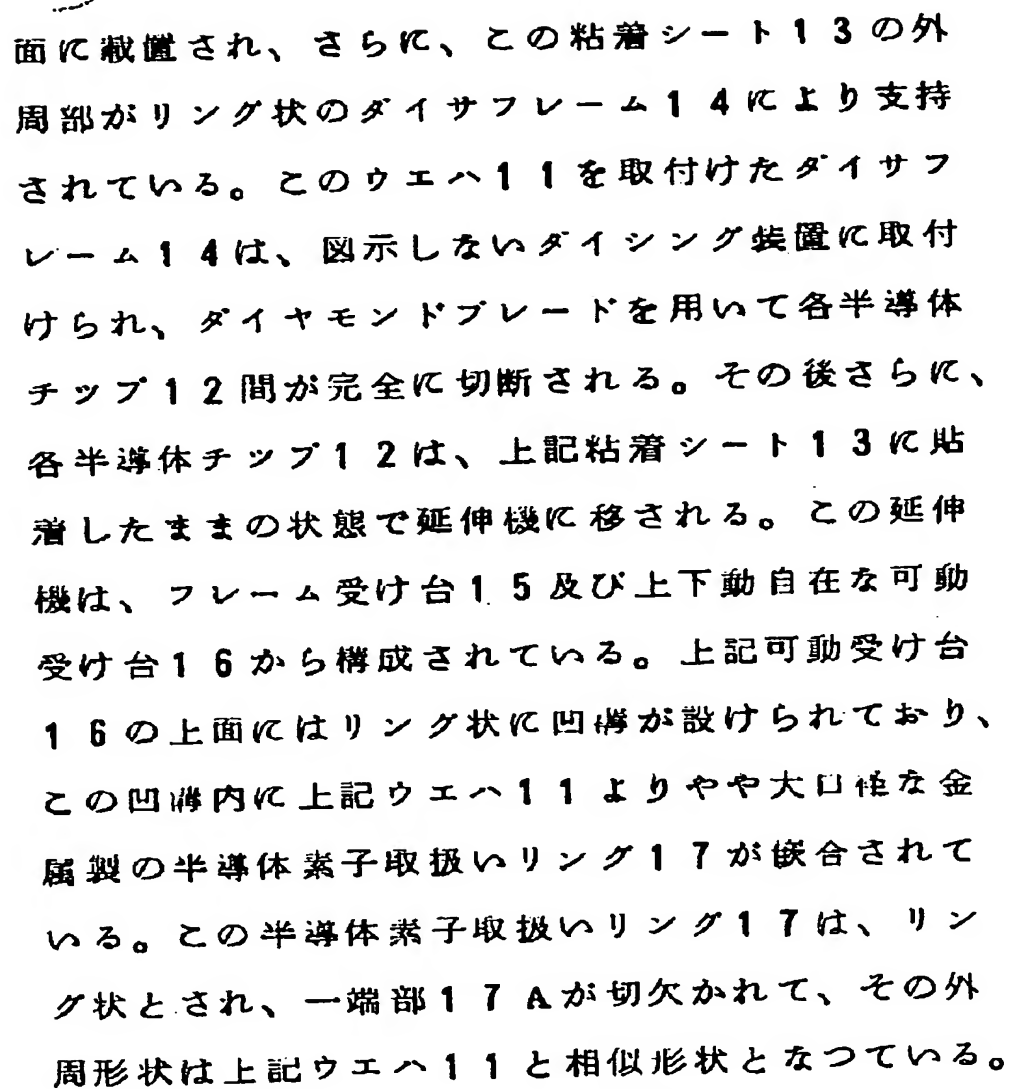 面に載置され、さらに、この粘着シート13の外
周部がリング状のダイサフレーム14により支持
されている。このウエハ11を取付けたダイサフ
レーム14は、図示しないダイシング装置に取付
けられ、ダイヤモンドブレードを用いて各半導体
チップ12間が完全に切断される。その後さらに、
各半導体チップ12は、上記粘着シート13に貼
着したままの状態で延伸機に移される。この延伸
機は、フレーム受け台15及び上下動自在な可動
受け台16から構成されている。上記可動受け台
16の上面にはリング状に凹溝が設けられており、
この凹溝内に上記ウエハ11よりやや大口径な金
属製の半導体素子取扱いリング17が嵌合されて
いる。この半導体素子取扱いリング17は、リン
グ状とされ、一端部17Aが切欠かれて、その外
周形状は上記ウエハ11と相似形状となつている。